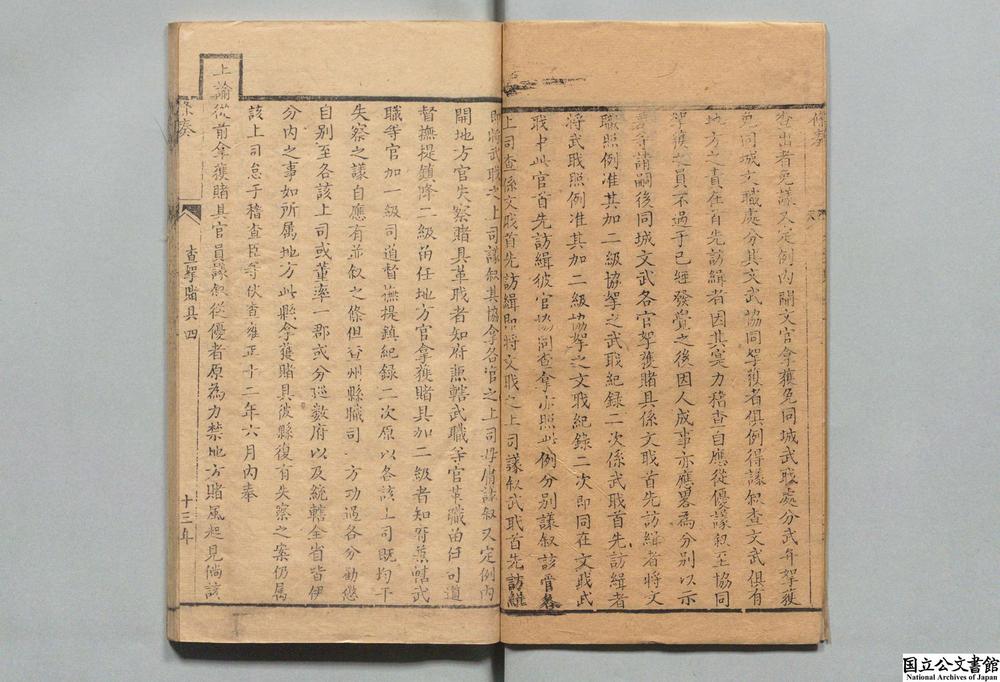 條奏
查出者免議又定例內開文官拿獲免同城武職處分武弁拏獲
免同城文職處分其文武協同拏獲者俱例得議叙查文武俱有
地方之責在首先訪緝者因其實力稽查自應從優議叙至協同
拏獲之員不過于已經發覺之後因人成事亦應畧為分別以示
等請嗣後同城文武各官拏獲賭具係文職首先訪緝者將文
職照例准其加二級協拏之武職紀錄二次係武職首先訪緝者
將武職照例准其加二級協拏之文職紀錄二次即同在文職武
職中此官首先訪緝彼官協同查拿亦照此例分別議叙該管各
上司查係文職首先訪緝即將文職之上司議叙武職首先訪緝
即將武職之上司議叙其協拿各官之上司毋庸議叙又定例內
開地方官失察賭具革職者知府兼轄武職等官革職留任司道
督撫提鎮降二級留任地方官拿獲賭具加二級者知府兼轄武
職等官加一級司道督撫提鎮紀錄二次原以各該上司既均干
失察之議自應有並叙之條但查州縣職司一方功過各分勸懲
自別至各該上司或董率一郡或分巡數府以及統轄全省皆伊
分內之事如所屬地方此縣拿獲賭具彼縣復有失察之案仍屬
該上司怠于稽查臣等伏查雍正十二年六月內奉
上諭從前拿獲賭具官員議叙從優者原為力禁地方賭風起見倘該
條奏
查拏賭具 四
十三年
国立公文書館
National Archives of Japan